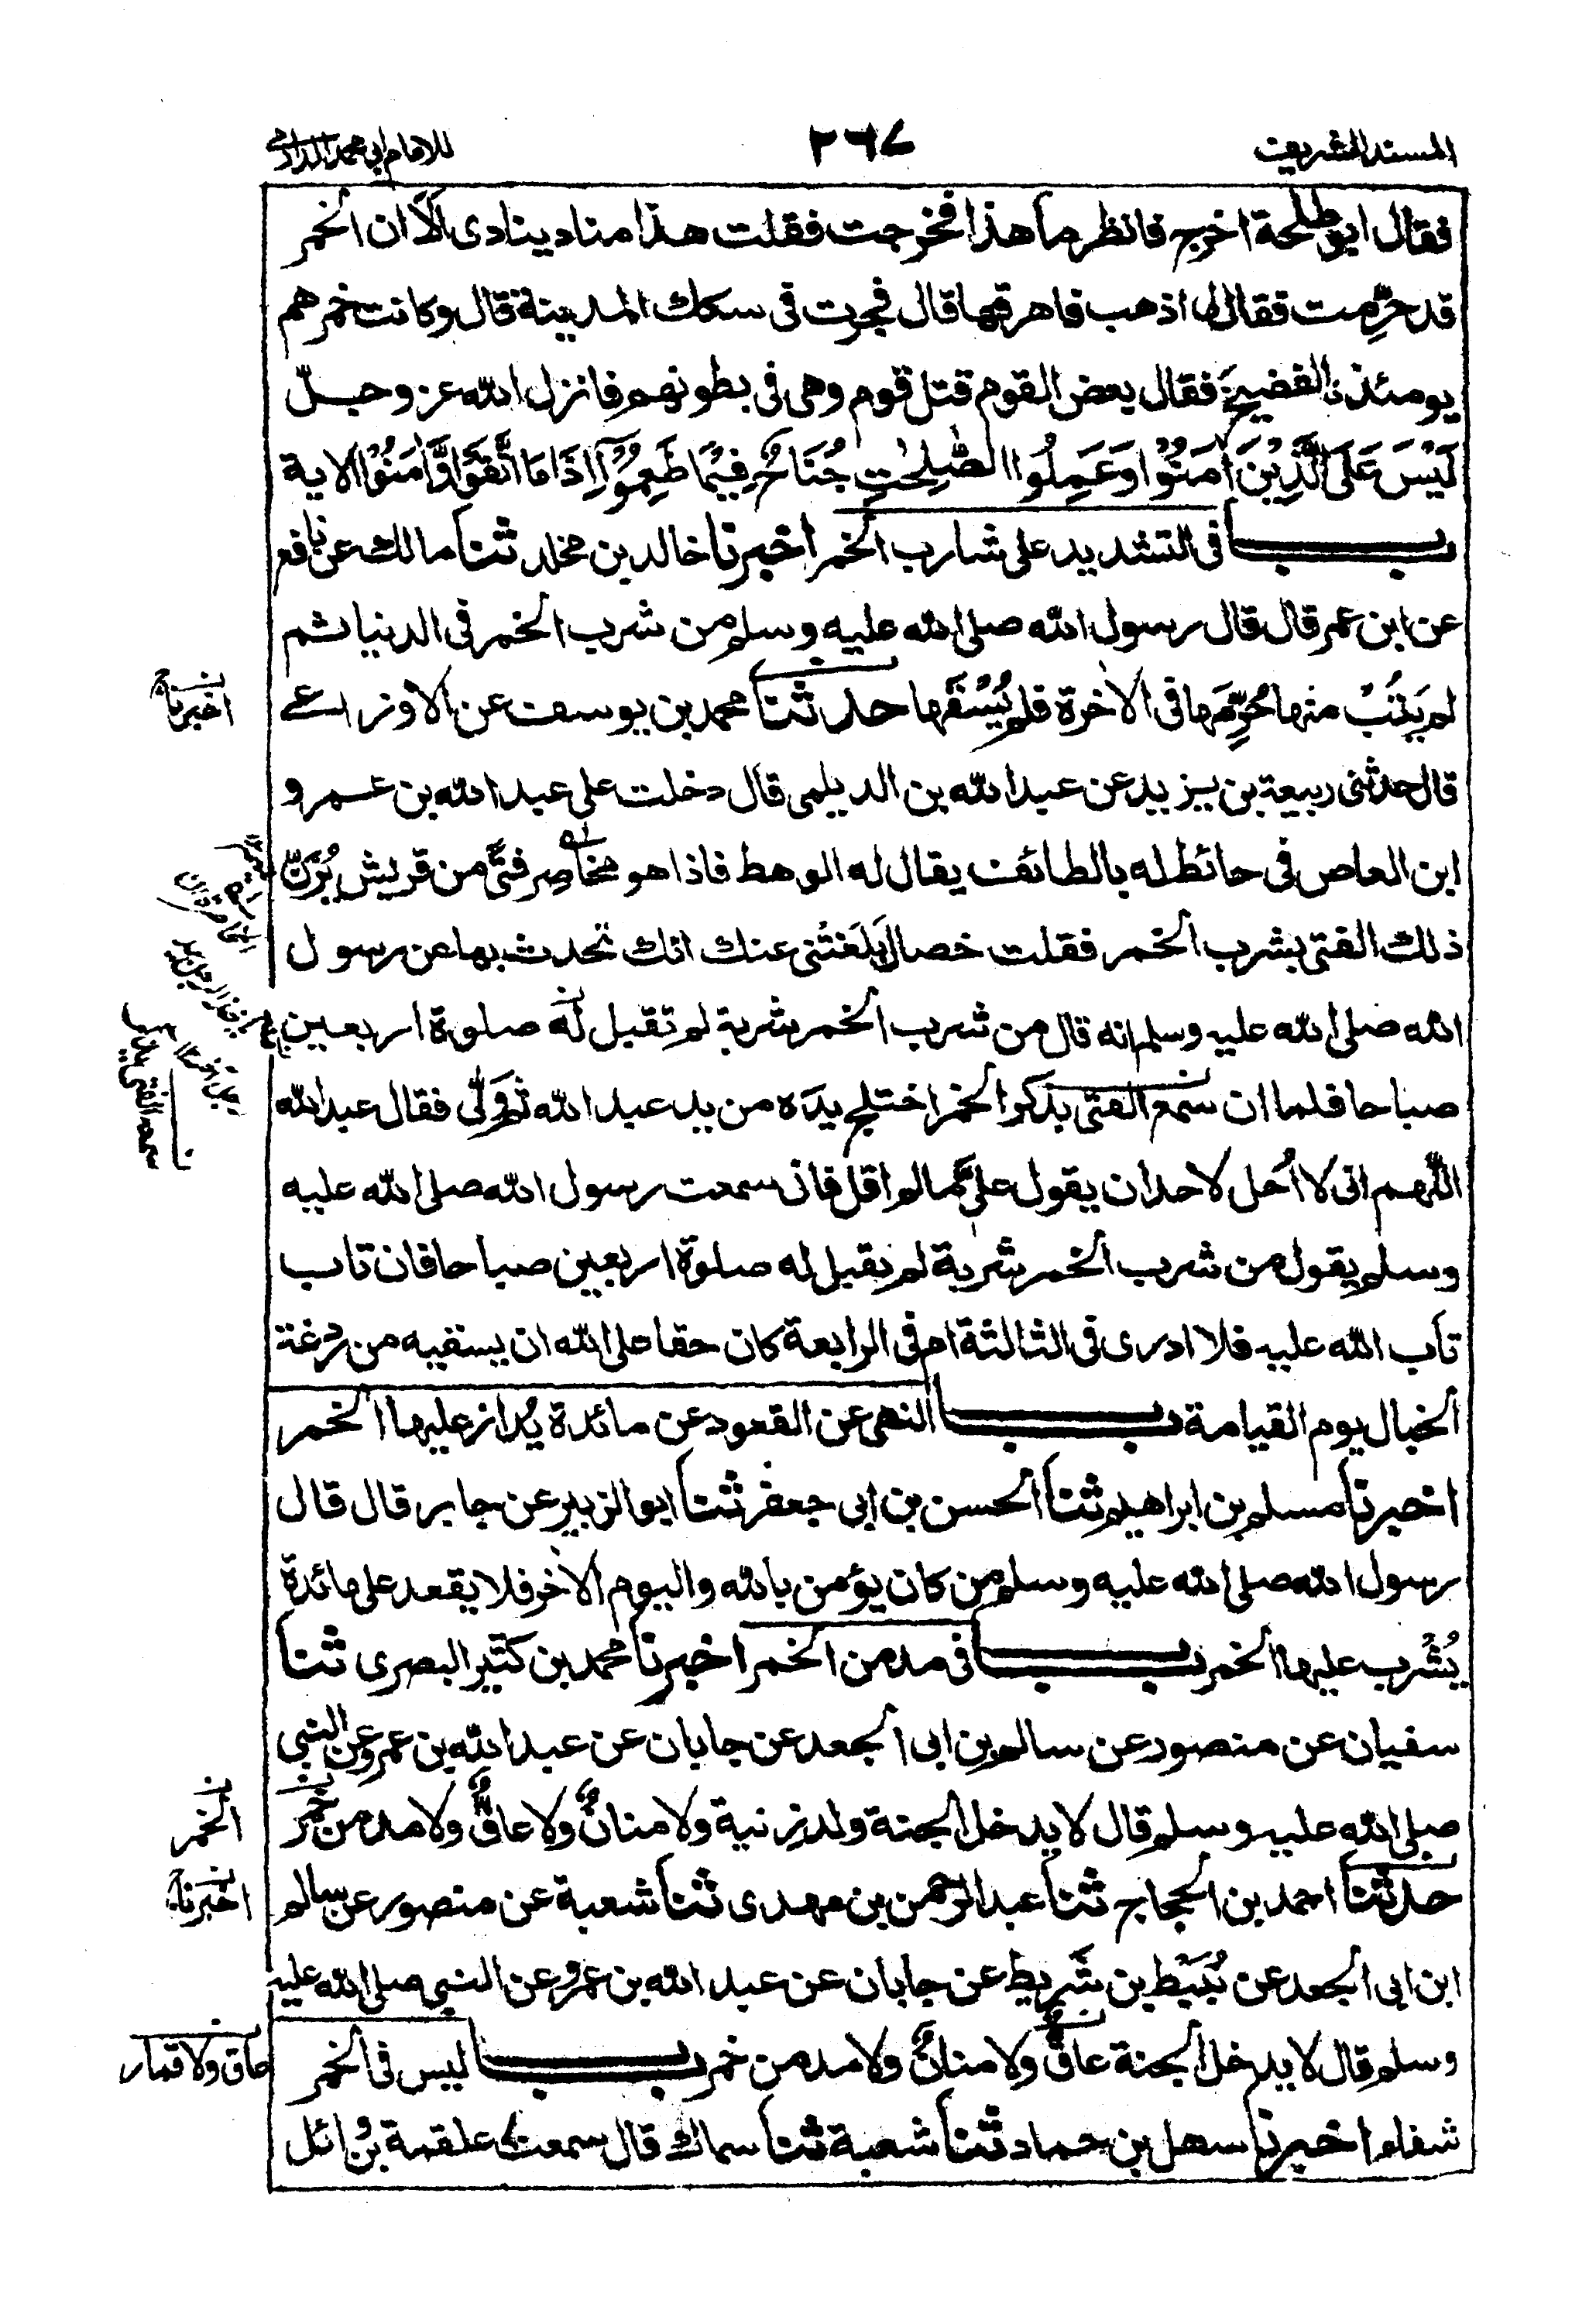 المسند الشريف
٢٦٧
للامام ابي محمد الدارمي
فقال ابو طلحة اخرج فانظر ما هذا فخرجت فقلت هذا مناد ينادى اَلَا ان الخمر
قد حرّمت فقال لى اذهب فاهرقها قال فجرت فى سكك المدينة قال وكانت خمرهم
يومئذ الفضيخ فقال بعض القوم قتل قوم وهى فى بطونهم فانزل الله عز وجلّ
لَيْسَ عَلَى الَّذِيْنَ اٰمَنُوْا وَعَمِلُوا الصّٰلِحٰتِ جُنَاحٌ فِيْمَا طَعِمُوْٓا اِذَا مَا اتَّقَوْا وَّاٰمَنُوْا الاية
بــــاب فى التشديد على شارب الخمر اخبرنا خالد بن مخلد ثنا مالك عن نافع
عن ابن عمر قال قال رسول الله صلى الله عليه وسلم من شرب الخمر فى الدنيا ثم
لم يَتُبْ منها حُرِّمَها فى الاٰخرة فلم يُسْقَها حدثنا محمد بن يوسف عن الاوزاعى
اخبرنا
قال حدثنى ربيعة بن يزيد عن عبد الله بن الديلمى قال دخلت على عبد الله بن عمرو
ابن العاص فى حائط له بالطائف يقال له الوهط فاذا هو مخاصِر فتًى من قريش يُزَنّ
ذلك الفتى بشرب الخمر فقلت خصال بَلَغَتْنى عنك انك تحدث بها عن رسول
الله صلى الله عليه وسلم انه قال من شرب الخمر شربة لم تقبل لَه صلوة اربعين
صباحا فلما ان سمع الفتى بذكر الخمر اختلج يدَه من يد عبد الله ثم وَلّى فقال عبد الله
سمعه الفتى
اللّٰهم انى لا اُحل لاحد ان يقول علىَّ مالم اقل فانى سمعت رسول الله صلى الله عليه
وسلم يقول من شرب الخمر شربة لم يقبل له صلوة اربعين صباحا فان تاب
تاب الله عليه فلا ادرى فى الثالثة ام فى الرابعة كان حقا على الله ان يسقيه من ردغة
الخبال يوم القيامة بــــاب النهى عن القعود عن مائدة يُدار عليها الخمر
اخبرنا مسلم بن ابراهيم ثنا الحسن بن ابى جعفر ثنا ابو الزبير عن جابر قال قال
رسول الله صلى الله عليه وسلم من كان يؤمن بالله واليوم الاٰخر فلا يقعد على مائدة
يُشْرب عليها الخمر بــــاب فى مدمن الخمر اخبرنا محمد بن كثير البصرى ثنا
سفيان عن منصور عن سالم بن ابى الجعد عن جابان عن عبد الله بن عمرو عن النبي
صلى الله عليه وسلم قال لا يدخل الجنة ولد زنية ولا منانٌ ولا عاقٌّ ولا مدمن خمر
الخمر
حدثنا احمد بن الحجاج ثنا عبد الرحمن بن مهدى ثنا شعبة عن منصور عن سالم
اخبرنا
ابن ابى الجعد عن نُبَيْط بن شَرِيط عن جابان عن عبد الله بن عمرو عن النبى صلى الله عليه
وسلم قال لا يدخل الجنة عاقٌّ ولا منانٌ ولا مدمن خمر بــــاب ليس فى الخمر
عاق ولا قمار
شفاء اخبرنا سهل بن حماد ثنا شعبة ثنا سماك قال سمعت علقمة بن وائل